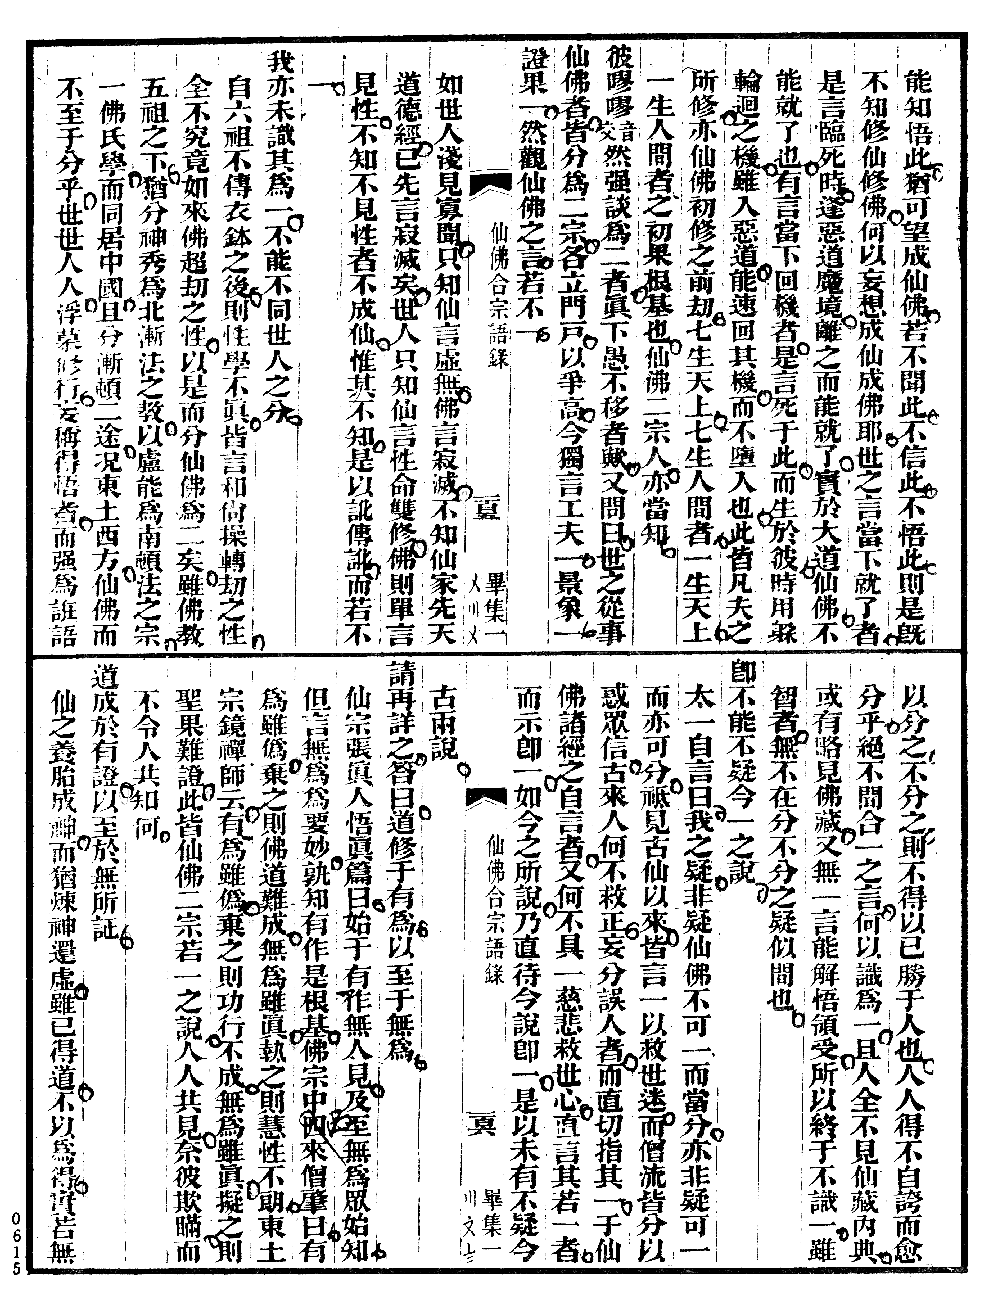 能知悟此猶可望成仙佛若不聞此不信此不悟此則是旣
不知修仙修佛何以妄想成仙成佛耶世之言當下就了者
是言臨死時逢惡道魔境離之而能就了實於大道仙佛不
能就了也有言當下回機者是言死于此而生於彼時用躱
輪迴之機雖入惡道能速回其機而不墮人也此皆凡夫之
所修亦仙佛初修之前劫七生天上七生人間者一生天上
一生人間者之初果根基也仙佛二宗人亦當知
彼嘐嘐音交然强談爲一者眞下愚不移者歟又問曰世之從事
仙佛者皆分爲二宗各立門戸以爭高今獨言工夫一景象一
證果一然觀仙佛之言若不一
仙佛合宗語錄
畢集一
如世人淺見寡聞只知仙言虛無佛言寂滅不知仙家先天
道德經已先言寂滅矣世人只知仙言性命雙修佛則單言
見性不知不見性者不成仙惟其不知是以訛傳訛而若不
一
我亦未識其爲一不能不同世人之分
自六祖不傳衣鉢之後則性學不眞皆言和尙操轉劫之性
全不究竟如來佛超劫之性以是而分仙佛爲二矣雖佛教
五祖之下猶分神秀爲北漸法之教以盧能爲南頓法之宗
一佛氏學而同居中國且分漸頓二途况東土西方仙佛而
不至于分乎世世人人浮慕修行妄稱得悟者而强爲誑語
以分之不分之則不得以已勝于人也人人得不自誇而愈
分乎絕不聞合一之言何以識爲一且人全不見仙藏內典
或有略見佛藏又無一言能解悟領受所以終于不識一雖
智者無不在分不分之疑似間也
卽不能不疑今一之說
太一自言曰我之疑非疑仙佛不可一而當分亦非疑可一
而亦可分祗見古仙以來皆言一以救世迷而僧流皆分以
惑眾信古來人何不救正妄分誤人者而直切指其一于仙
佛諸經之自言者又何不具一慈悲救世心直言其若一者
而示卽一如今之所說乃直待今說卽一是以未有不疑今
仙佛合宗語錄
畢集一
古兩說
請再詳之答曰道修于有爲以至于無爲
仙宗張眞人悟眞篇曰始于有作無人見及至無爲眾始知
但言無爲爲要妙孰知有作是根基佛宗中西來僧肇曰有
爲雖僞棄之則佛道難成無爲雖眞執之則慧性不朗東土
宗鏡禪師云有爲雖僞棄之則功行不成無爲雖眞擬之則
聖果難證此皆仙佛二宗若一之說人人共見奈彼欺瞞而
不令人共知何
道成於有證以至於無所証
仙之養胎成神而猶煉神還虛雖已得道不以爲得實若無
0615